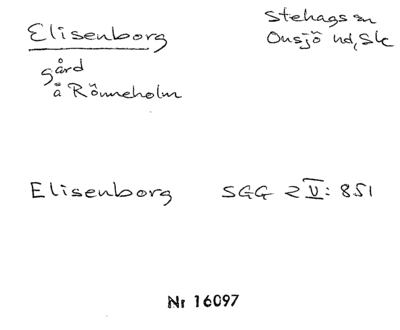 Elisenborg
Stehags sn
Onsjö hd, Sk
gård
å Rönneholm
Elisenborg SGG 2 V: 851
Nr 16097